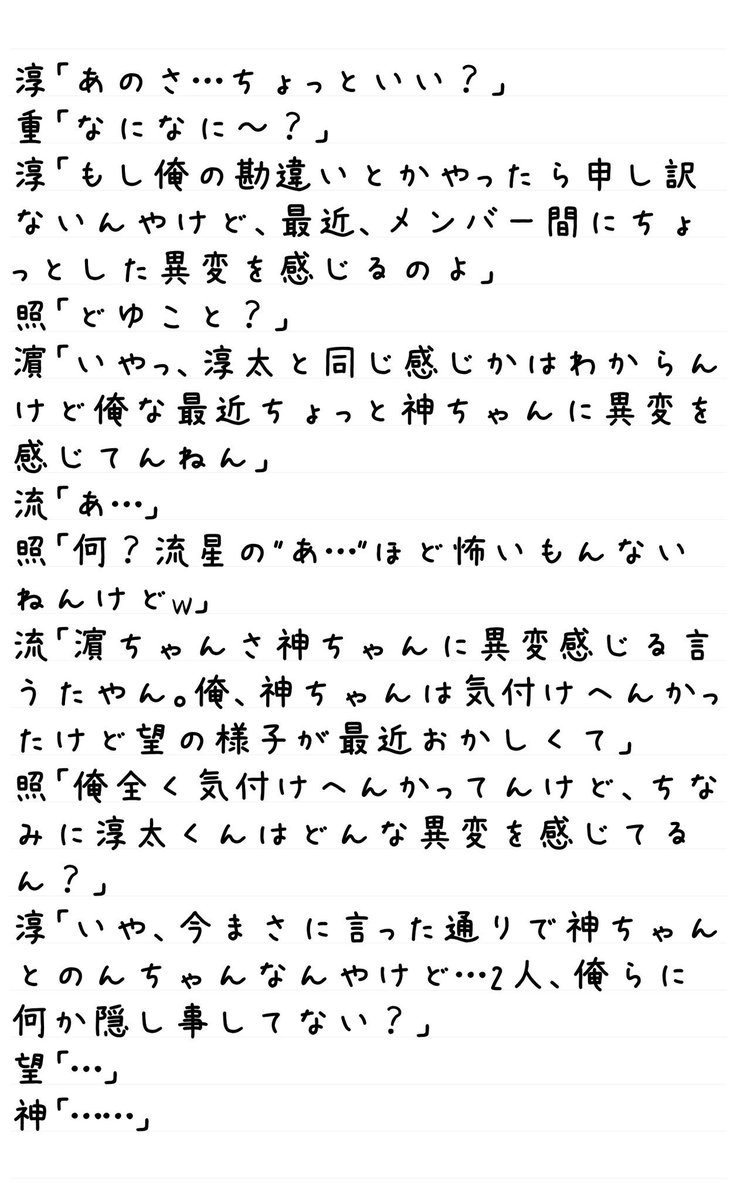 淳「あのさ…ちょっといい？」
重「なになに〜？」
淳「もし俺の勘違いとかやったら申し訳
ないんやけど、最近、メンバー間にちょ
っとした異変を感じるのよ」
照「どゆこと？」
濵「いやっ、淳太と同じ感じかはわからん
けど俺な最近ちょっと神ちゃんに異変を
感じてんねん」
流「あ…」
照「何？流星の"あ…"ほど怖いもんない
ねんけどw」
流「濵ちゃんさ神ちゃんに異変感じる言
うたやん。俺、神ちゃんは気付けへんかっ
たけど望の様子が最近おかしくて」
照「俺全く気付けへんかってんけど、ちな
みに淳太くんはどんな異変を感じてる
ん？」
淳「いや、今まさに言った通りで神ちゃん
とのんちゃんなんやけど…2人、俺らに
何か隠し事してない？」
望「…」
神「……」